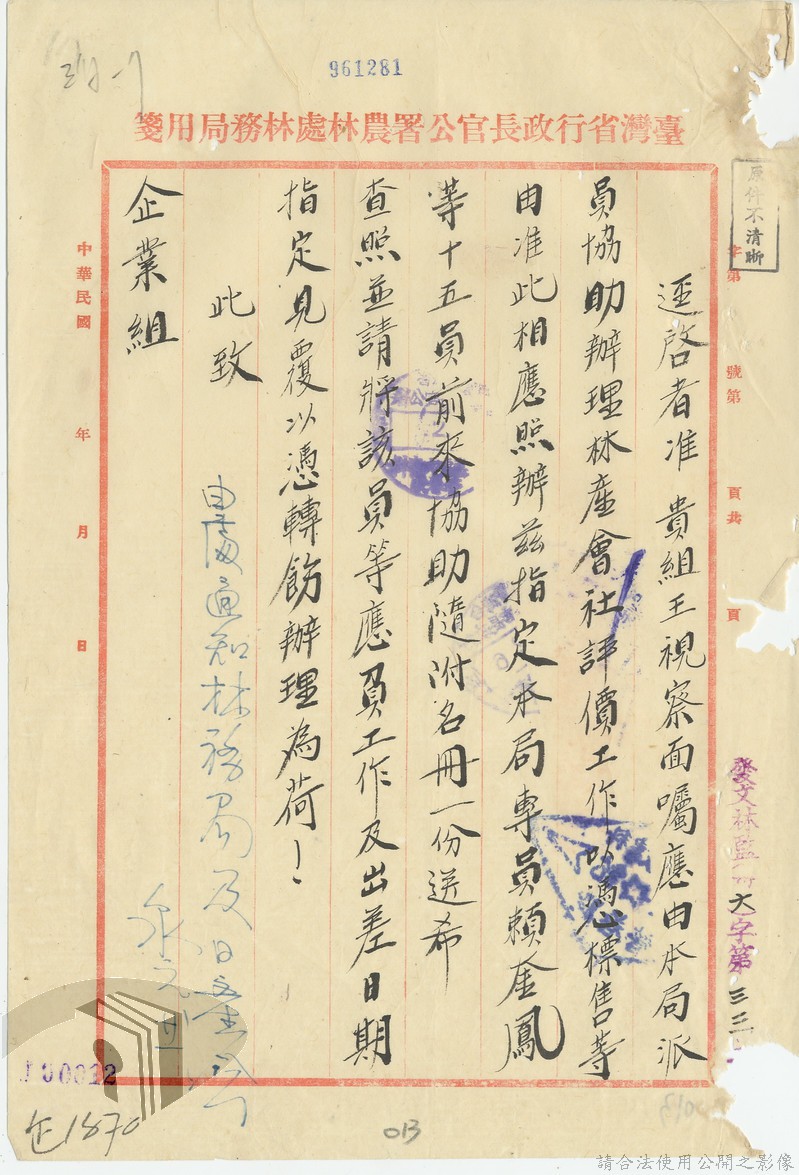 961281
臺灣省行政長官公署農林處林務局用箋
原件不清晰
字第 號第 頁共 頁
發文林監 大字第三三
逕啓者准 貴組王視察面囑應由本局派
員協助辦理林產會社評價工作以憑標售等
由准此相應照辦茲指定本局專員賴金鳳
等十五員前來協助隨附名冊一份送希
查照並請將該員等應負工作及出差日期
指定見覆以憑轉飭辦理為荷！
此致
企業組
由處通知林務局及日產
中華民國 年 月 日
100012
1870
013
請合法使用公開之影像